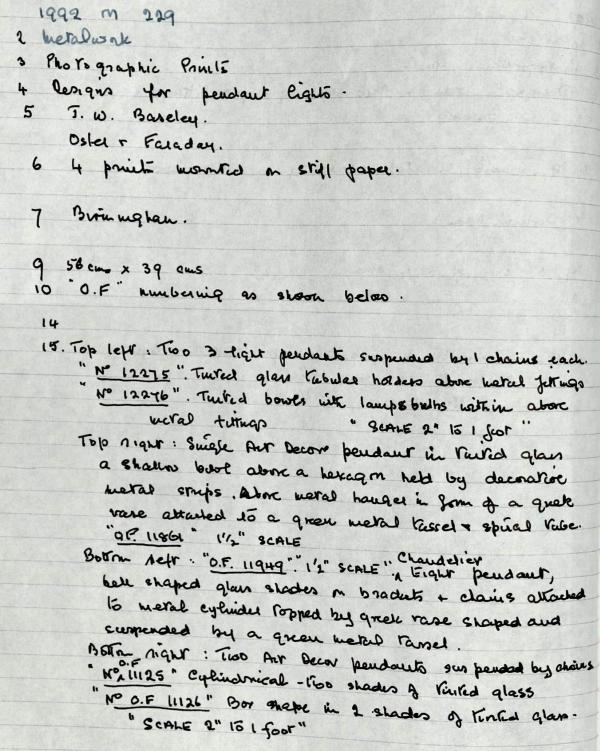 1992 M 229
2 Metalwork
3 Photographic Prints
4 Designs for pendant lights.
5 J. W. Baseley.
Osler + Faraday.
6 4 prints mounted on stiff paper.
7 Birmingham.
9 56 cms x 39 cms
10 "O.F" numbering as shown below.
14
15. Top left: Two 3-light pendants suspended by 1 chains each.
"No 12275". Tinted glass tubular holders above metal fittings
"No 12276". Tinted bowls with lamps bulbs within above
metal fittings "SCALE 2" to 1 foot"
Top right: Single Art Decor pendant in tinted glass
a shallow bowl above a hexagon held by decorative
metal strips. Above metal hanger in form of a greek
vase attached to a green metal tassel + spiral tube.
"O.F. 11861" 1½" SCALE
Bottom left: "O.F. 11949". "1½" SCALE" Chandelier Eight pendant,
bell shaped glass shades on brackets + chains attached
to metal cylinder topped by greek vase shaped and
suspended by a green metal tassel.
Bottom right: Two Art Decor pendants suspended by chains
"No O.F 11125" Cylindrical - two shades of tinted glass
"No O.F 11126" Box shape in 2 shades of tinted glass.
"SCALE 2" to 1 foot"